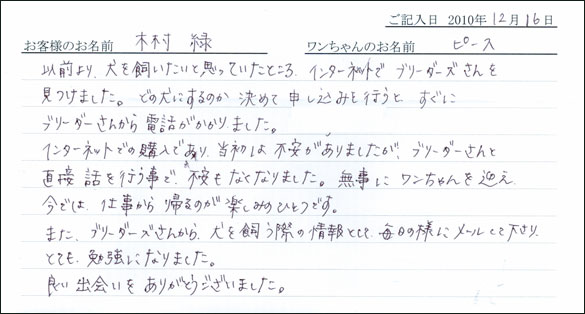 ご記入日 2010年12月16日
お客様のお名前 木村 緑 ワンちゃんのお名前 ピース
以前より、犬を飼いたいと思っていたところ、インターネットで ブリーダーズさんを
見つけました。どの犬にするのか 決めて 申し込みを行うと すぐに
ブリーダーさんから 電話がかかりました。
インターネットでの購入であり、当初は 不安がありましたが、ブリーダーさんと
直接 話を行う事で、不安もなくなりました。無事に ワンちゃんを迎え
今では、仕事から帰るのが 楽しみのひとつです。
また、ブリーダーズさんから、犬を飼う際の情報として、毎日の様にメールして下さり、
とても、勉強になりました。
良い出会いを ありがとうございました。